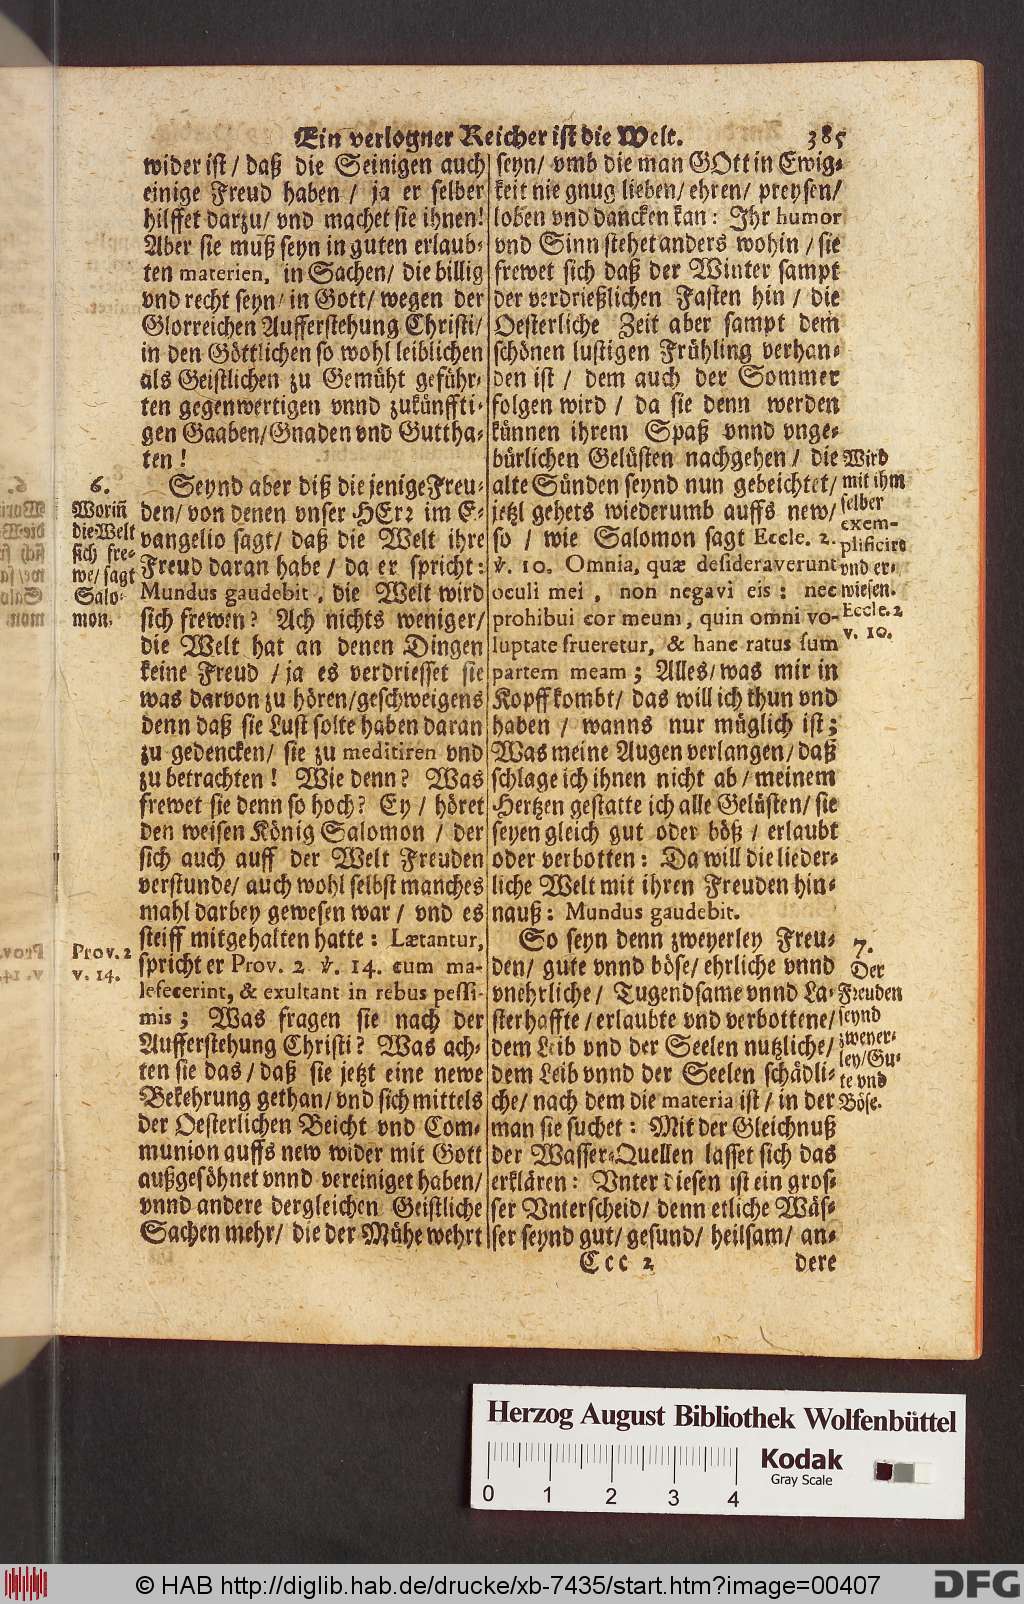 Ein verlogner Reicher ist die Welt. 385
wider ist / daß die Seinigen auch
einige Freud haben / ja er selber
hilffet darzu / vnd machet sie ihnen!
Aber sie muß seyn in guten erlaub-
ten materien, in Sachen / die billig
vnd recht seyn / in Gott / wegen der
Glorreichen Aufferstehung Christi /
in den Göttlichen so wohl leiblichen
als Geistlichen zu Gemüht geführ-
ten gegenwertigen vnnd zukünffti-
gen Gaaben / Gnaden vnd Guttha-
ten!
6.
Woriñ
die Welt
sich fre-
we / sagt
Salo-
mon.
Seynd aber diß die jenige Freu-
den / von denen vnser HErꝛ im E-
vangelio sagt / daß die Welt ihre
Freud daran habe / da er spricht:
Mundus gaudebit, die Welt wird
sich frewen? Ach nichts weniger /
die Welt hat an denen Dingen
keine Freud / ja es verdriesset sie
was darvon zu hören / geschweigens
denn daß sie Lust solte haben daran
zu gedencken / sie zu meditiren vnd
zu betrachten! Wie denn? Was
frewet sie denn so hoch? Ey / höret
den weisen König Salomon / der
sich auch auff der Welt Freuden
verstunde / auch wohl selbst manches
mahl darbey gewesen war / vnd es
steiff mitgehalten hatte: Lætantur,
Prov. 2
v. 14.
spricht er Prov. 2 ꝟ. 14. cum ma-
lefecerint, & exultant in rebus pessi-
mis; Was fragen sie nach der
Aufferstehung Christi? Was ach-
ten sie das / daß sie jetzt eine newe
Bekehrung gethan / vnd sich mittels
der Oesterlichen Beicht vnd Com-
munion auffs new wider mit Gott
außgesöhnet vnnd vereiniget haben /
vnnd andere dergleichen Geistliche
Sachen mehr / die der Mühe wehrt
seyn / vmb die man GOtt in Ewig-
keit nie gnug lieben / ehren / preysen /
loben vnd dancken kan: Ihr humor
vnd Sinn stehet anders wohin / sie
frewet sich daß der Winter sampt
der verdrießlichen Fasten hin / die
Oesterliche Zeit aber sampt dem
schönen lustigen Frühling verhan-
den ist / dem auch der Sommer
folgen wird / da sie denn werden
künnen ihrem Spaß vnnd vnge-
bürlichen Gelüsten nachgehen / die
alte Sünden seynd nun gebeichtet /
jetzl gehets wiederumb auffs new /
so / wie Salomon sagt Eccle. 2.
ꝟ. 10. Omnia, quæ desideraverunt
oculi mei, non negavi eis: nec
prohibui cor meum, quin omni vo-
luptate frueretur, & hanc ratus sum
partem meam; Alles / was mir in
Kopff kombt / das will ich thun vnd
haben / wanns nur müglich ist;
Was meine Augen verlangen / daß
schlage ich ihnen nicht ab / meinem
Hertzen gestatte ich alle Gelüsten / sie
seyen gleich gut oder böß / erlaubt
oder verbotten: Da will die lieder-
liche Welt mit ihren Freuden hin-
nauß: Mundus gaudebit.
Wird
mit ihm
selber
exem-
plificirt
vnd er-
wiesen.
Eccle. 2
v. 10.
So seyn denn zweyerley Freu-
den / gute vnnd böse / ehrliche vnnd
vnehrliche / Tugendsame vnnd La-
sterhaffte / erlaubte vnd verbottene /
dem Leib vnd der Seelen nutzliche /
dem Leib vnnd der Seelen schädli-
che / nach dem die materia ist / in der
man sie suchet: Mit der Gleichnuß
der Wasser-Quellen lasset sich das
erklären: Vnter diesen ist ein gros-
ser Vnterscheid / denn etliche Wäs-
ser seynd gut / gesund / heilsam / an-
7.
Der
Freuden
seynd
zweyer-
ley / Gu-
te vnd
Böse.
Ccc 2 dere
Herzog August Bibliothek Wolfenbüttel
Kodak
Gray Scale
0 1 2 3 4
© HAB http://diglib.hab.de/drucke/xb-7435/start.htm?image=00407
DFG